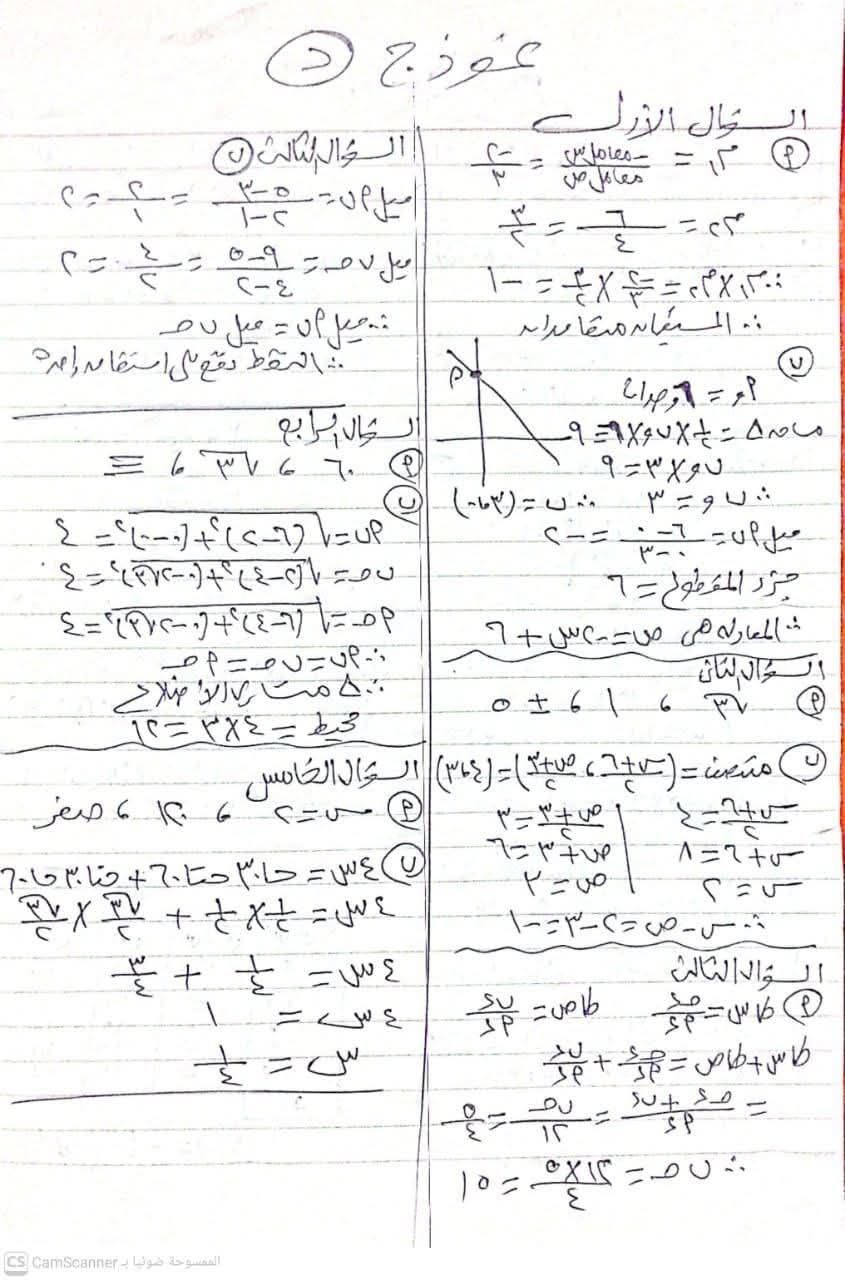 نموذج (د)
السؤال الأول
(أ) م١ = -معامل س / معامل ص = -٢/٣
م٢ = ٦/٤ = ٣/٢
∴ م١ × م٢ = -٢/٣ × ٣/٢ = -١
∴ المستقيمان متعامدان
(ب)
أ
أو = ٦ وحدات
مساحة Δ = ١/٢ × ب و × ٦ = ٩
ب و × ٣ = ٩
∴ ب و = ٣ ∴ ب = (٣، ٠)
ميل أب = ٦-٠ / ٠-٣ = -٢
جزء المقطوع = ٦
∴ المعادلة هى ص = -٢س + ٦
السؤال الثانى
(أ) √٣ ، ١ ، ± ٥
(ب) منتصف = (س+٦/٢ ، ص+٣/٢) = (٤، ٣)
س+٦/٢ = ٤ | ص+٣/٢ = ٣
س + ٦ = ٨ | ص + ٣ = ٦
س = ٢ | ص = ٣
∴ س - ص = ٢ - ٣ = -١
السؤال الثالث
(أ) طا س = حـ ء / أ ء طا ص = ب ء / أ ء
طا س + طا ص = حـ ء / أ ء + ب ء / أ ء
= حـ ء + ب ء / أ ء = ب حـ / ١٢ = ٥/٤
∴ ب حـ = ١٢×٥ / ٤ = ١٥
السؤال الثالث (ب)
ميل أب = ٥-٣ / ٢-١ = ٢/١ = ٢
ميل ب حـ = ٩-٥ / ٤-٢ = ٤/٢ = ٢
∴ ميل أب = ميل ب حـ
∴ النقط تقع على استقامة واحدة
السؤال الرابع
(أ) ٦٠ ، √٣ ، ≡
(ب)
أب = √(٦-٢)² + (٠-٠)² = ٤
ب حـ = √(٢-٤)² + (٠-٢√٣)² = ٤
أ حـ = √(٦-٤)² + (٠-٢√٣)² = ٤
∴ أب = ب حـ = أ حـ
∴ Δ متساوى الأضلاع
محيط = ٤ × ٣ = ١٢
السؤال الخامس
(أ) س = ٢ ، ١٢٠ ، صفر
(ب) ٤س = حا٣٠ حتا٦٠ + حتا٣٠ حا٦٠
٤س = ١/٢ × ١/٢ + √٣/٢ × √٣/٢
٤س = ١/٤ + ٣/٤
٤س = ١
س = ١/٤
الممسوحة ضوئيا بـ CamScanner
CS